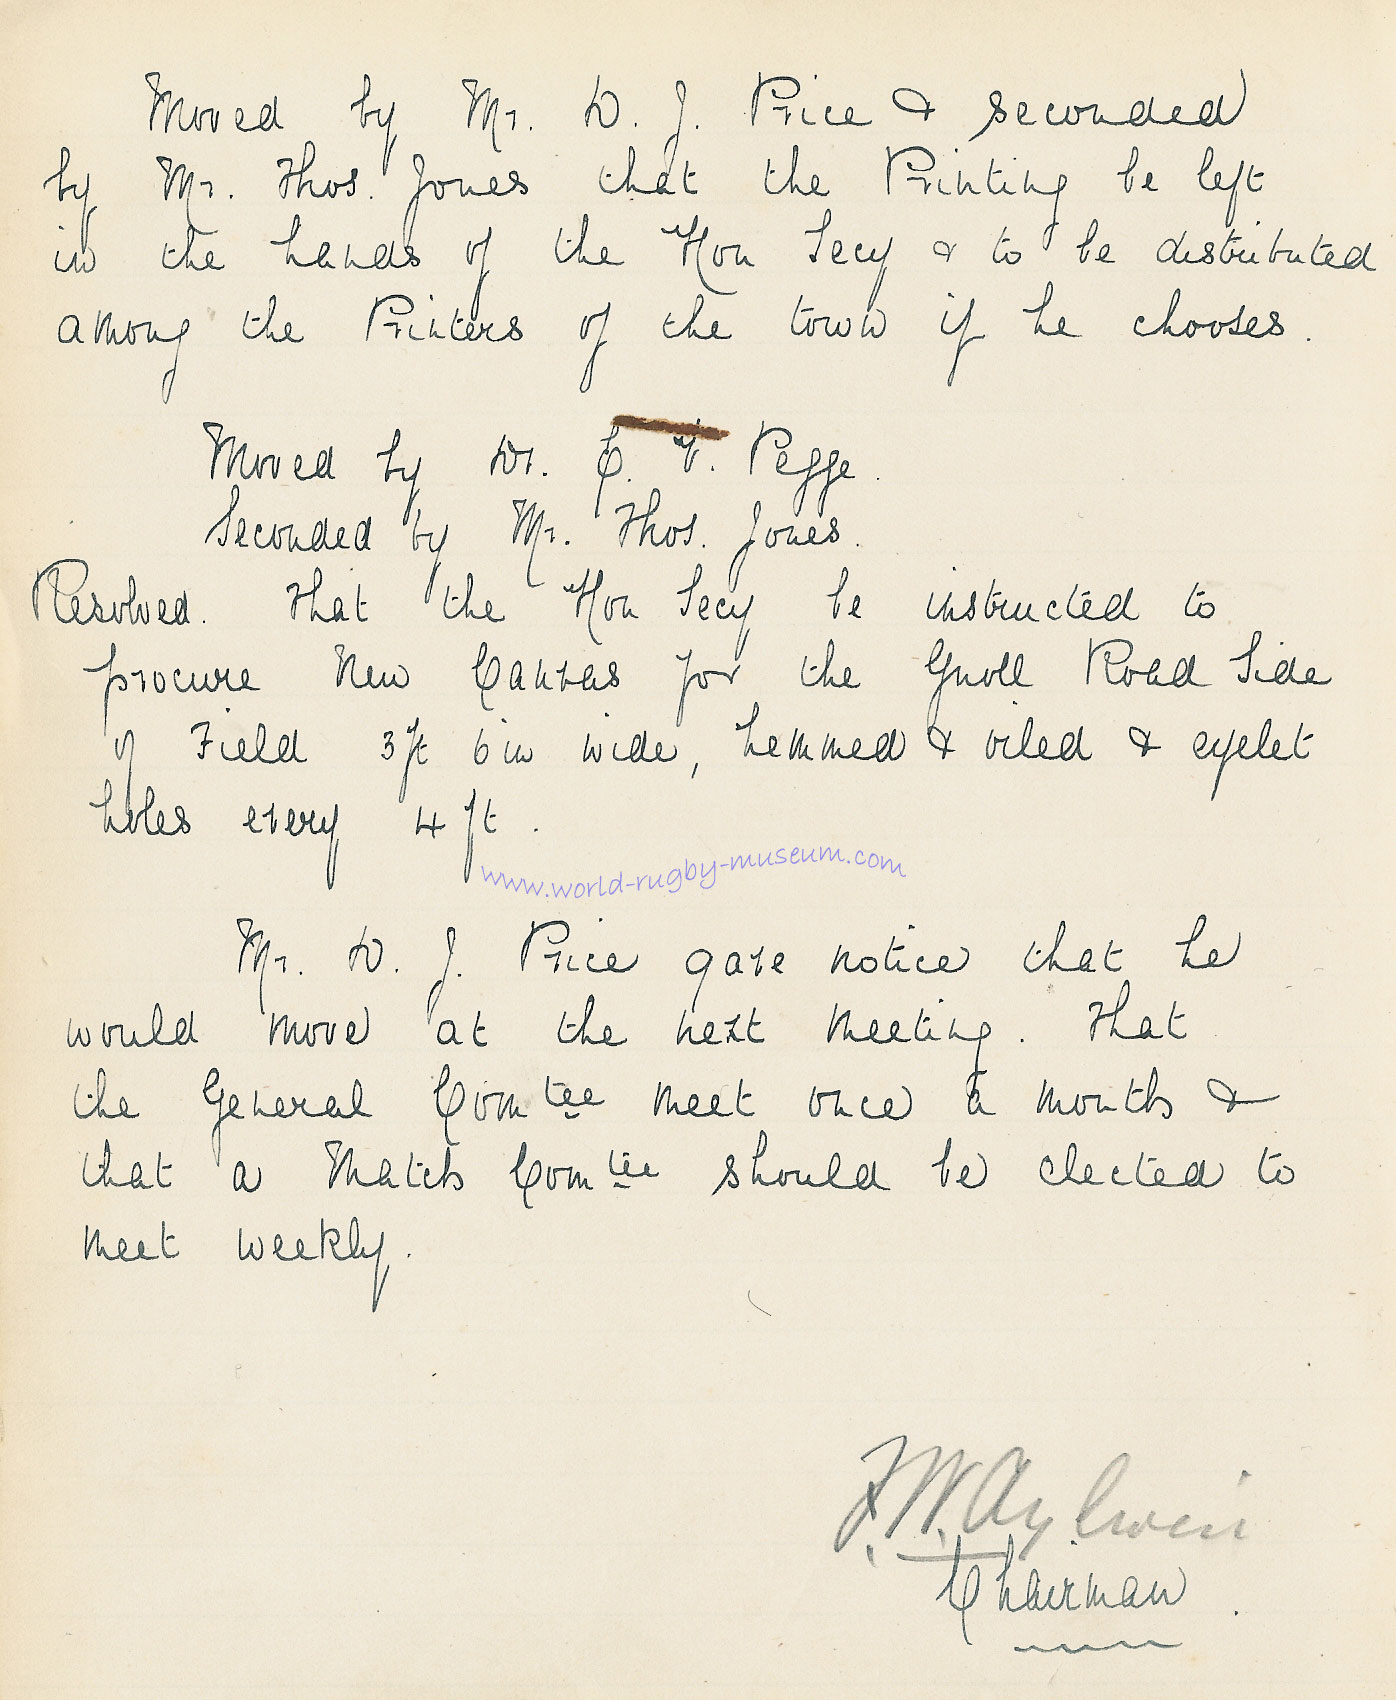 Moved by Mr. D. J. Price & seconded
by Mr. Thos. Jones that the Printing be left
in the hands of the Hon Secy & to be distributed
among the Printers of the town if he chooses.
Moved by Dr. E. V. Pegge.
Seconded by Mr. Thos. Jones.
Resolved. That the Hon Secy be instructed to
procure New Canvas for the Gnoll Road Side
of Field 3ft 6in wide, hemmed & oiled & eyelet
holes every 4 ft.
www.world-rugby-museum.com
Mr. D. J. Price gave notice that he
would move at the next meeting. That
the General Comtee meet once a month &
that a Match Comtee should be elected to
meet weekly.
F. W. Aylwin
Chairman.